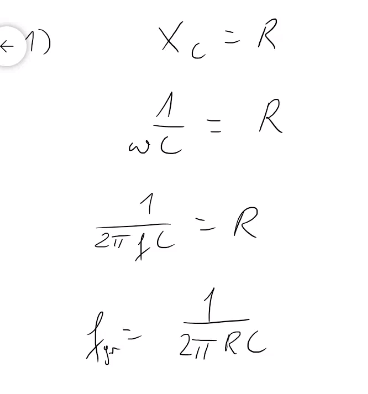 1) X_C = R
1/(ωC) = R
1/(2π f C) = R
f_gr = 1/(2π R C)